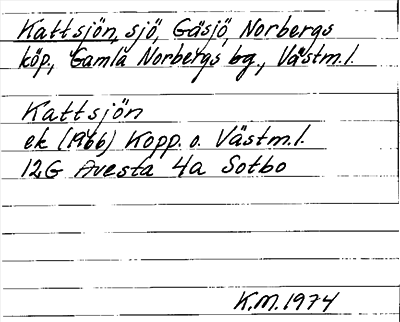 Kattsjön, sjö, Gäsjö, Norbergs
köp., Gamla Norbergs bg., Västm.l.
Kattsjön
ek (1966) Kopp. o. Västm.l.
12G Avesta 4a Sotbo
K.M. 1974